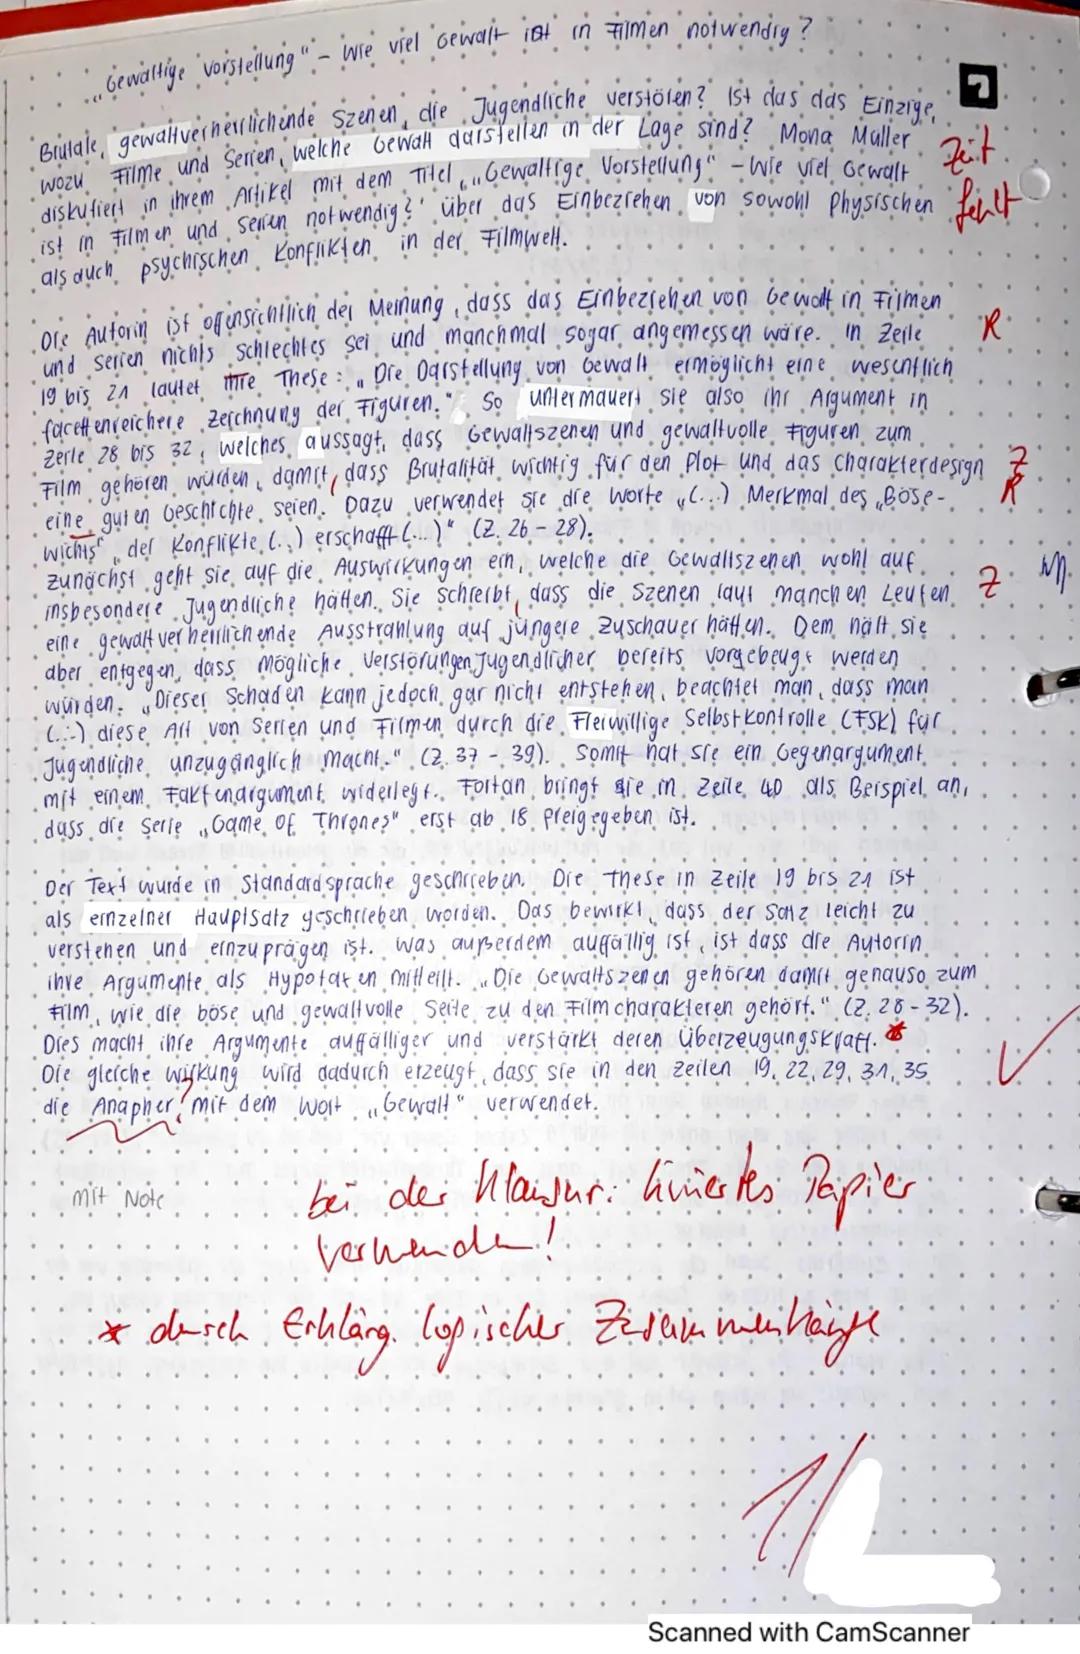 „Gewaltige Vorstellung" – Wie viel Gewalt ist in Filmen notwendig?
Brutale, gewaltverherrlichende Szenen, die Jugendliche verstören? Ist das das Einzige,
wozu Filme und Serien, welche Gewalt darstellen in der Lage sind? Mona Müller
Zeit
diskutiert in ihrem Artikel mit dem Titel „Gewaltige Vorstellung" – Wie viel Gewalt
fehlt
ist in Filmen und Serien notwendig?' über das Einbeziehen von sowohl physischen
als auch psychischen Konflikten in der Filmwelt.
Die Autorin ist offensichtlich der Meinung, dass das Einbeziehen von Gewalt in Filmen
und Serien nichts Schlechtes sei und manchmal sogar angemessen wäre. In Zeile R
19 bis 21 lautet ihre These: „Die Darstellung von Gewalt ermöglicht eine wesentlich
facettenreichere Zeichnung der Figuren." So untermauert sie also ihr Argument in
Zeile 28 bis 32, welches aussagt, dass Gewaltszenen und gewaltvolle Figuren zum
Film gehören würden, damit, dass Brutalität wichtig für den Plot und das Charakterdesign Z
eine guten Geschichte seien. Dazu verwendet sie die Worte „(...) Merkmal des „Böse- R
wichts", der Konflikte (...) erschafft (...)" (Z. 26 – 28).
Zunächst geht sie auf die Auswirkungen ein, welche die Gewaltszenen wohl auf
insbesondere Jugendliche hätten. Sie schreibt, dass die Szenen laut manchen Leuten Z
eine gewaltverherrlichende Ausstrahlung auf jüngere Zuschauer hätten. Dem hält sie
aber entgegen, dass mögliche Verstörungen Jugendlicher bereits vorgebeugt werden
würden. „Dieser Schaden kann jedoch gar nicht entstehen, beachtet man, dass man
(...) diese Art von Serien und Filmen durch die Freiwillige Selbstkontrolle (FSK) für
Jugendliche unzugänglich macht." (Z. 37 – 39). Somit hat sie ein Gegenargument
mit einem Faktenargument widerlegt. Fortan bringt sie in Zeile 40 als Beispiel an,
dass die Serie „Game of Thrones" erst ab 18 freigegeben ist.
Der Text wurde in Standardsprache geschrieben. Die These in Zeile 19 bis 21 ist
als einzelner Hauptsatz geschrieben worden. Das bewirkt, dass der Satz leicht zu
verstehen und einzuprägen ist. Was außerdem auffällig ist, ist dass die Autorin
ihre Argumente als Hypotaxen mitteilt. „Die Gewaltszenen gehören damit genauso zum
Film, wie die böse und gewaltvolle Seite zu den Filmcharakteren gehört." (Z. 28 – 32).
Dies macht ihre Argumente auffälliger und verstärkt deren Überzeugungskraft. *
Die gleiche Wirkung wird dadurch erzeugt, dass sie in den Zeilen 19, 22, 29, 31, 35
die Anapher ? mit dem Wort „Gewalt" verwendet.
mit Note
bei der Klausur: liniertes Papier
verwenden!
* durch Erklärg. logischer Zusammenhänge
Scanned with CamScanner